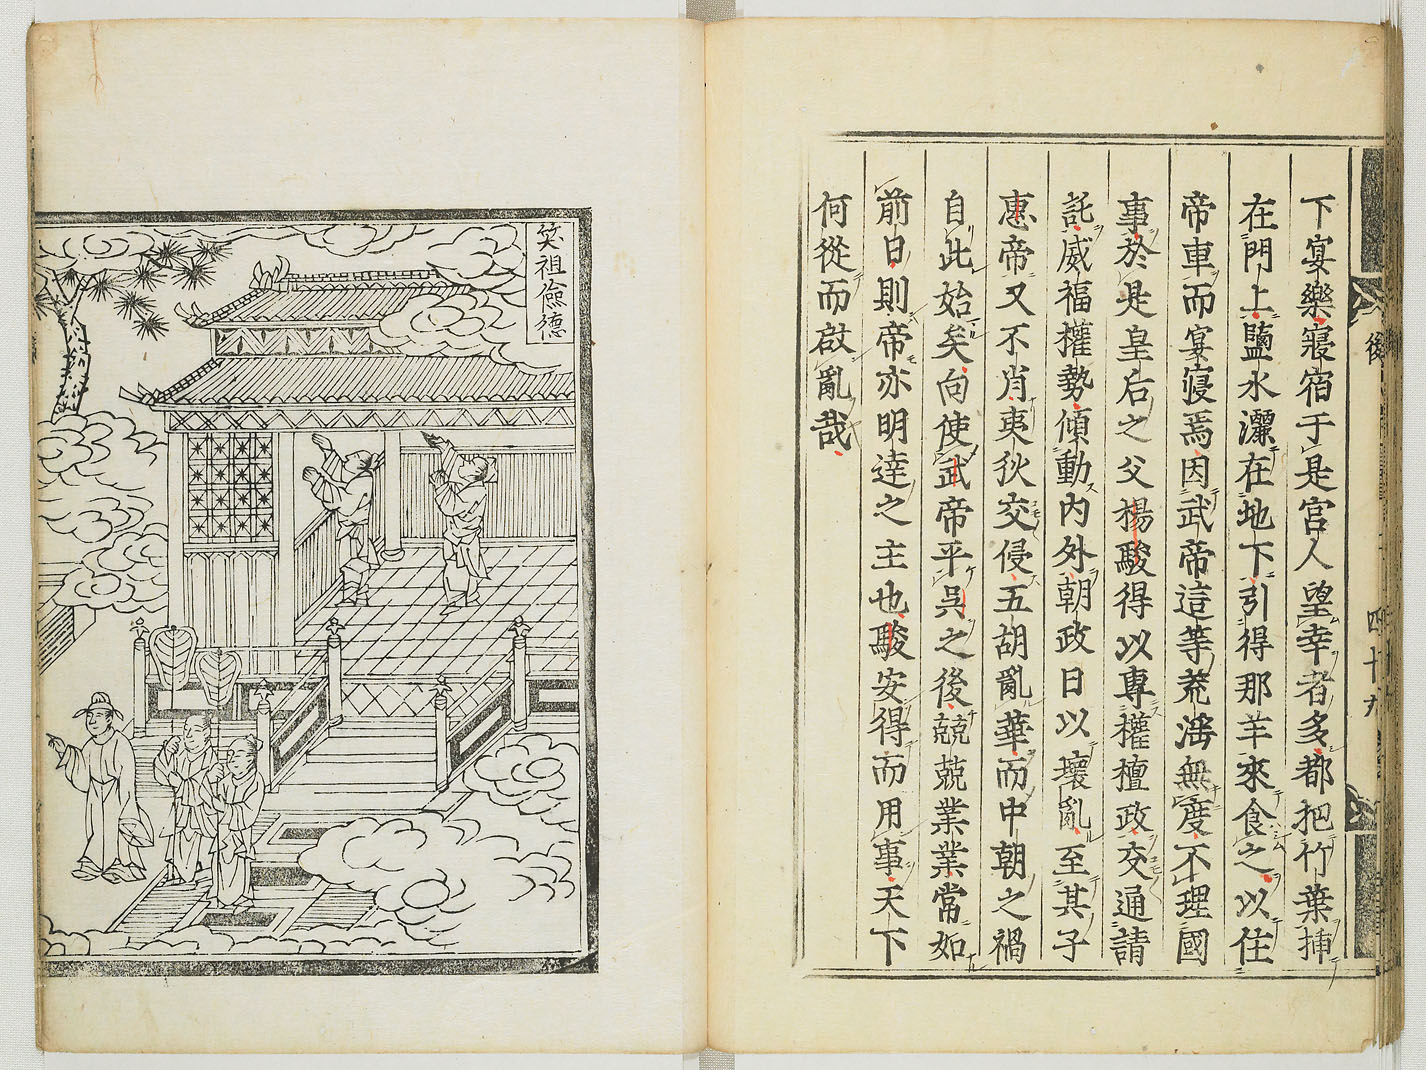 下宴樂寢宿于是宮人望幸者多都把竹葉揷
在門上鹽水灑在地下引得那羊來食之以住
帝車而宴寢焉因武帝這等荒滛無度不理國
事於是皇后之父楊駿得以專權擅政交通請
託威福權勢傾動內外朝政日以壞亂至其子
惠帝又不肖夷狄交侵五胡亂華而中朝之禍
自此始矣向使武帝平吳之後兢兢業業常如
前日則帝亦明達之主也駿安得而用事天下
何從而啟亂哉
後
四十九
笑祖儉德